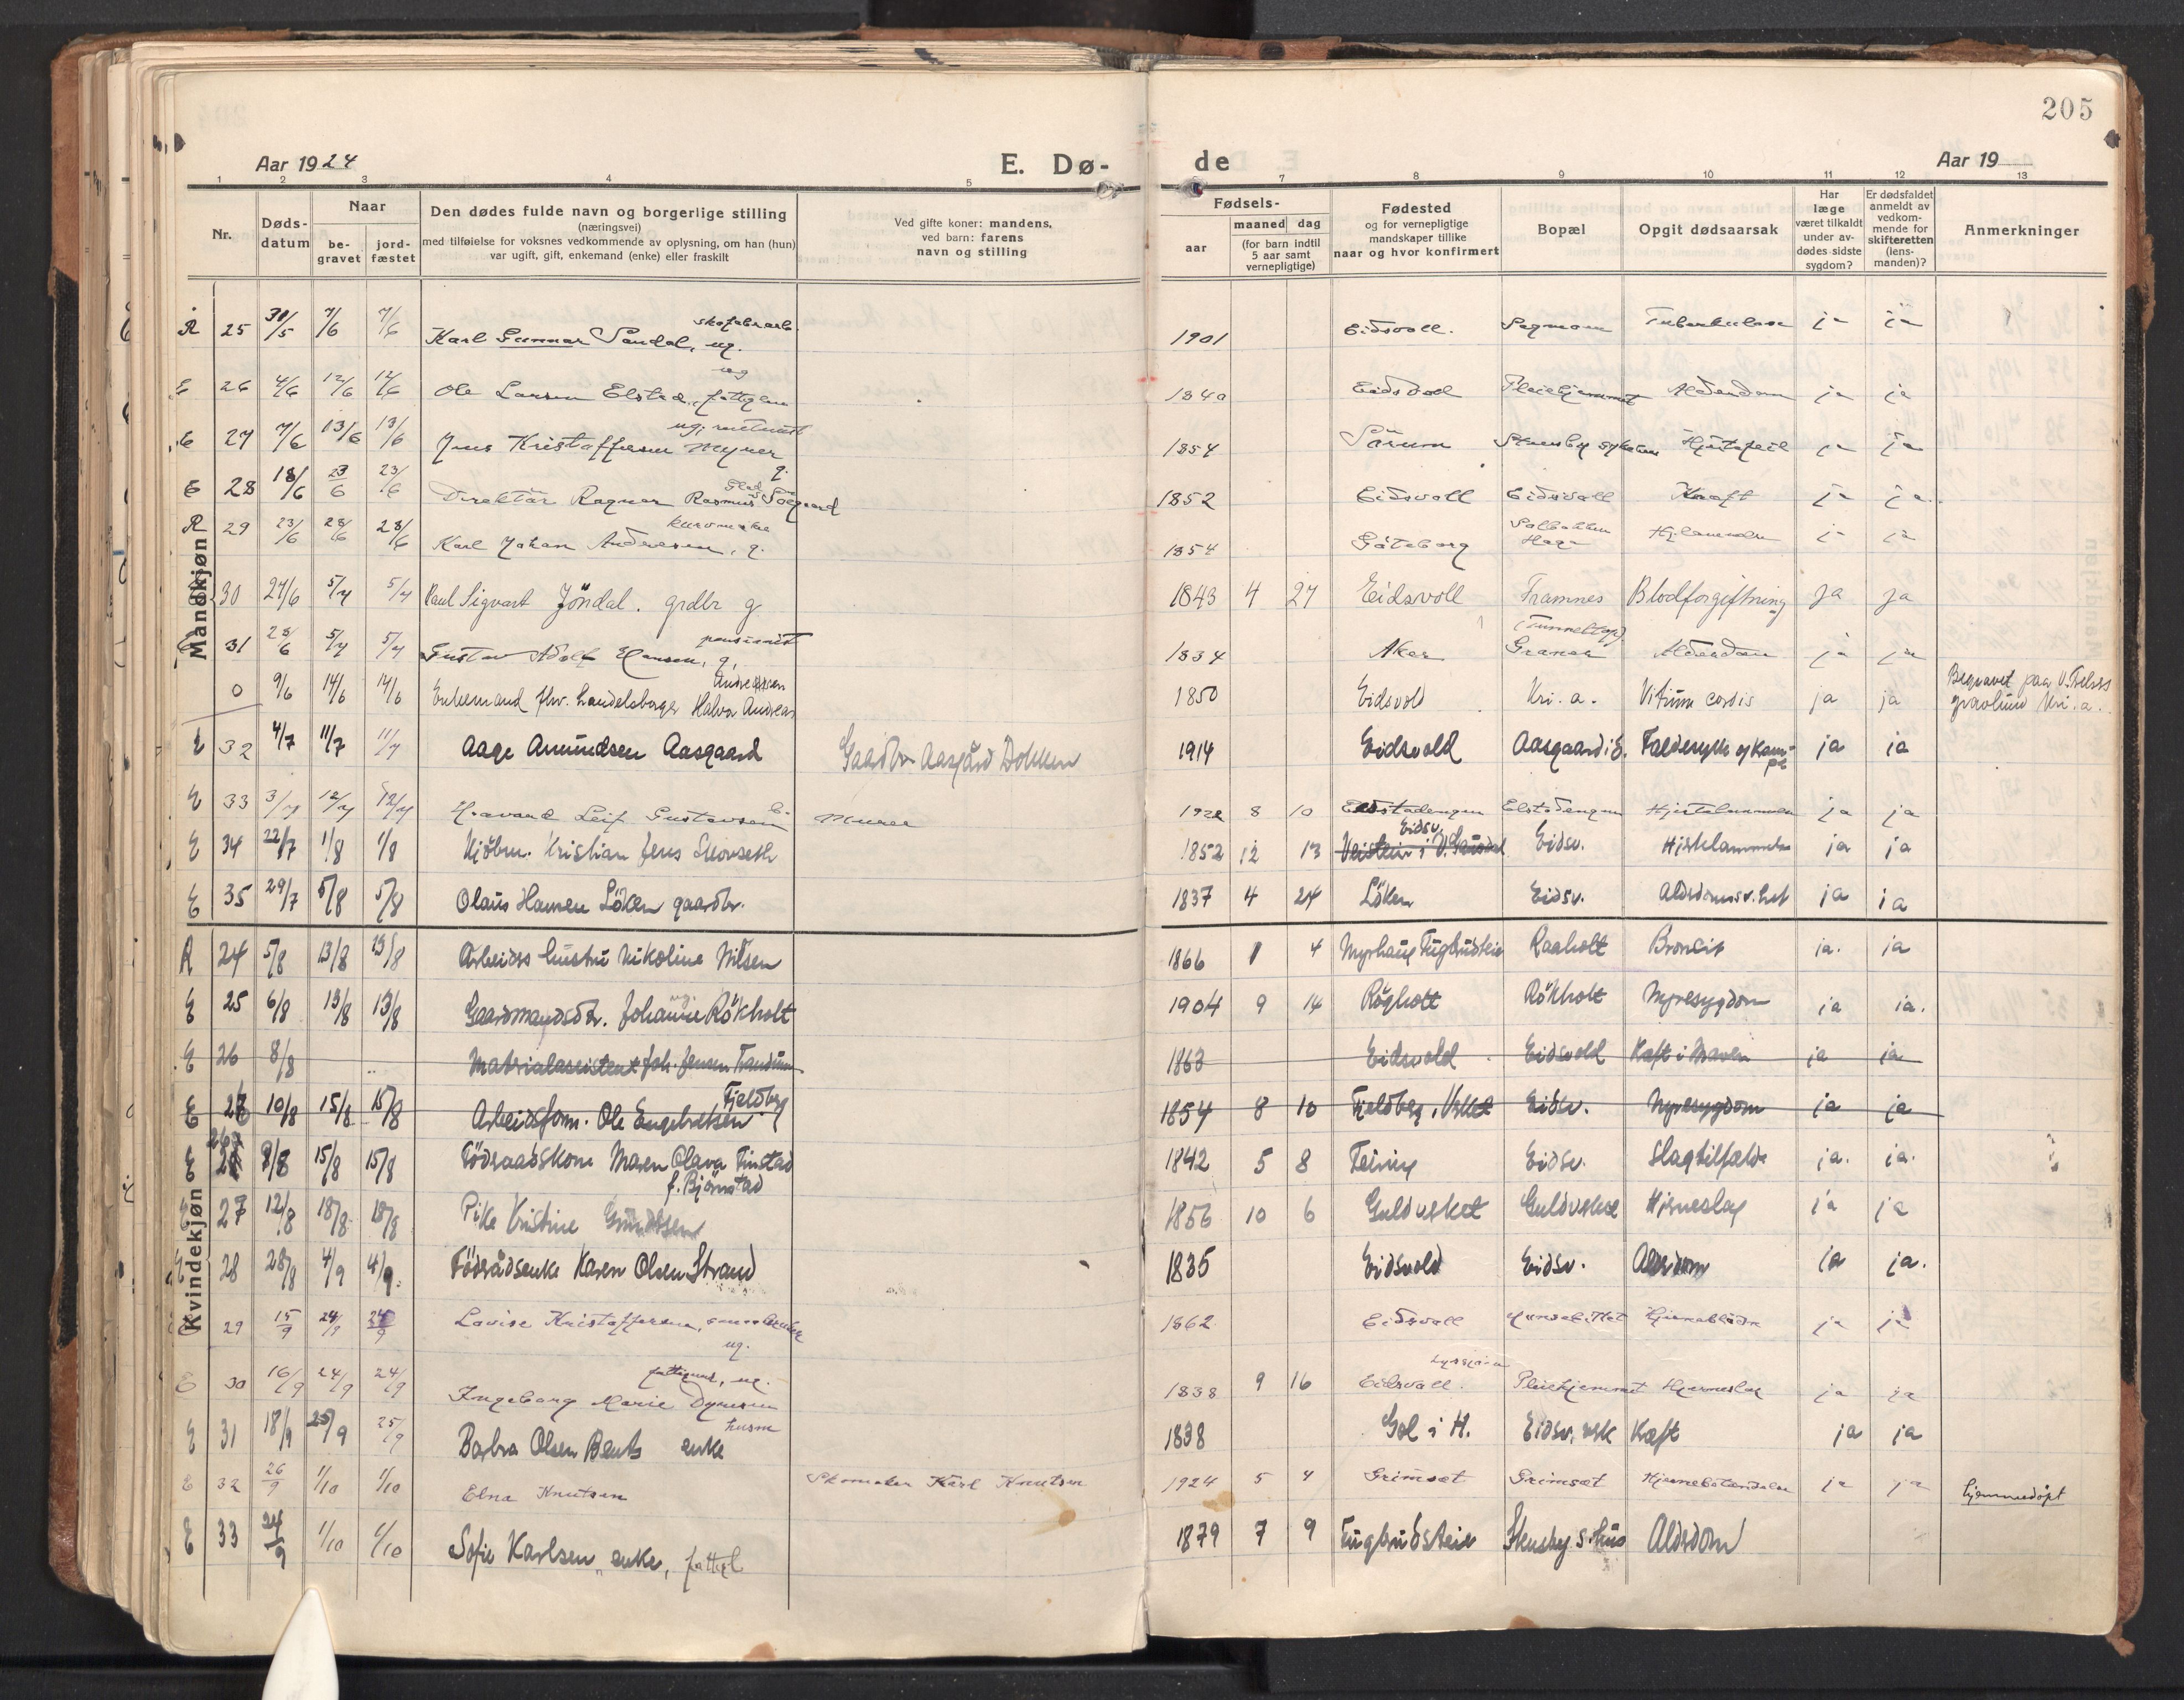 205
Aar 1924 E. Dø- de Aar 19
1 2 3 4 5 7 8 9 10 11 12 13
Nr. Døds-datum Naar be-gravet jord-fæstet Den dødes fulde navn og borgerlige stilling (næringsvei) med tilføielse for voksnes vedkommende av oplysning, om han (hun) var ugift, gift, enkemand (enke) eller fraskilt Ved gifte koner: mandens, ved barn: farens navn og stilling Fødsels- aar maaned dag (for barn indtil 5 aar samt vernepligtige) Fødested og for vernepligtige mandskaper tillike naar og hvor konfirmert Bopæl Opgit dødsaarsak Har læge været tilkaldt under av-dødes sidste sygdom? Er dødsfaldet anmeldt av vedkom-mende for skifteretten (lens-manden)? Anmerkninger
Mandkjøn
R 25 30/5 7/6 7/6 Karl Gunnar Sandal, ug. skofabrarb. 1901 Eidsvoll. Tuberkulose ja ja
E 26 4/6 12/6 12/6 Ole Larsen Elstad, fattiglem ug 1840 Eidsvoll Pleiehjemmet Alderdom ja ja
E 27 7/6 13/6 13/6 Jens Kristoffersen Myrer ug. 1854 Sørum Stensby sykehus Hjertefeil ja ja
E 28 18/6 23/6 23/6 Direktør Ragnar Rasmus Solgaard g. 1852 Eidsvoll Eidsvoll Kræft ja ja.
R 29 23/6 28/6 28/6 Karl Johan Andersen, g. kurvmaker 1854 Göteborg Haga ja ja
30 27/6 5/7 5/7 Paul Sigvart Jøndal. grdbr g 1843 4 27 Eidsvoll Tramnes Blodforgiftning ja ja
31 28/6 5/7 5/7 Gustav Adolf Hansen, g, pensionist 1834 Aker Graner Alderdom ja ja
0 9/6 14/6 14/6 Enkemand fhv. handelsborger Halvor Andreas Andreassen 1850 Eidsvold Kri. a. Vitium cordis ja ja Begravet paa V. Frelsers gravlund Kri. a.
E 32 4/7 11/7 11/7 Aage Amundsen Aasgaard Gaardbr Aasgård Dokken 1914 Eidsvold Aasgaard i E. Faldesyke ja ja
E 33 3/7 12/7 12/7 Havard Leif Gustavsen Murer 8 10 Elstadengen Elstadengen Hjertelammelse ja ja
E 34 22/7 1/8 1/8 Kjøbm. Kristian Jens Skovseth 1852 12 13 Eidsv. Eidsv. Hjertelammelse ja ja
E 35 29/7 5/8 5/8 Olaus Hansen Løken gaardbr. 1837 4 24 Løken Eidsv. ja ja
Kvindekjøn
R 24 5/8 13/8 13/8 Arbeiders hustru Nikoline Nilsen 1866 1 4 Myrhaug Fugbudseie Raaholt Broncit ja. ja
E 25 6/8 13/8 13/8 Gaardmandsdtr. Johanne Røkholt ug. 1904 9 14 Røgholt Røkholt Nyresygdom ja ja.
E 26 8/8 Materialassistent Joh. Jensen Trandum 1863 Eidsvold Eidsvold Kæft i Maven ja ja
E 10/8 15/8 15/8 Arbeidsform. Ole Engebretsen Fjeldberg 1854 8 10 Fjeldberg, Verket Eidsv. Nyresygdom ja ja
E 26 8/8 15/8 15/8 Födraadskone Maren Olava Finstad f. Bjørnstad 1842 5 8 Feiring Eidsv. Slagtilfælde ja. ja.
E 27 12/8 18/8 18/8 Pike Kristine Gundersen 1856 10 6 Guldverket Guldverket Hjerneslag ja ja
28 28/8 4/9 4/9. Födrådsenke Karen Olsen Strand 1835 Eidsvold Eidsv. Alderdom ja ja.
29 15/9 24/9 24/9 Lovise Kristoffersen, ug. 1862 Eidsvoll ja ja
E 30 16/9 24/9 24/9 Ingeborg Marie Dynesen fattigunt, ug. 1838 9 16 Eidsvoll. Pleiehjemmet Hjerneslag ja ja
E 31 18/9 25/9 25/9 Barbra Olsen Bents enke husm 1838 Gol i H. Eidsv. verk Kæft ja ja
E 32 26/9 1/10 1/10 Elna Knutsen Skomaker Karl Knutsen 1924 5 4 Grimset Grimset Hjernebetændelse ja ja hjemmedøpt
E 33 24/9 1/10 1/10 Sofie Karlsen, enke, fattigl 1879 7 9 Fugbudseie Stensby s.hus Alderdom